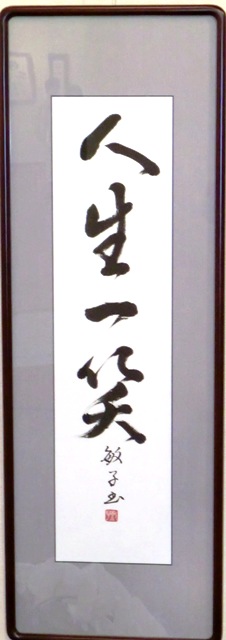 人生一笑
敏子书